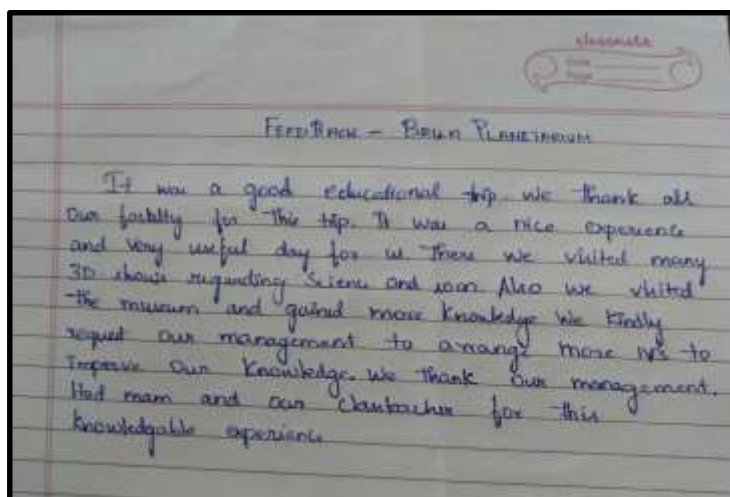 classmate
Date
Page
FEEDBACK - BIRLA PLANETARIUM
It was a good educational trip. we thank all
our faculty for this trip. It was a nice experience
and very useful day for us. There we visited many
3D shows regarding Science and soon Also we visited
the museum and gained more knowledge We kindly
request our management to arrange more IV's to
Improve our knowledge. We thank our management.
Hod mam and our classteacher for this
knowledgable experience